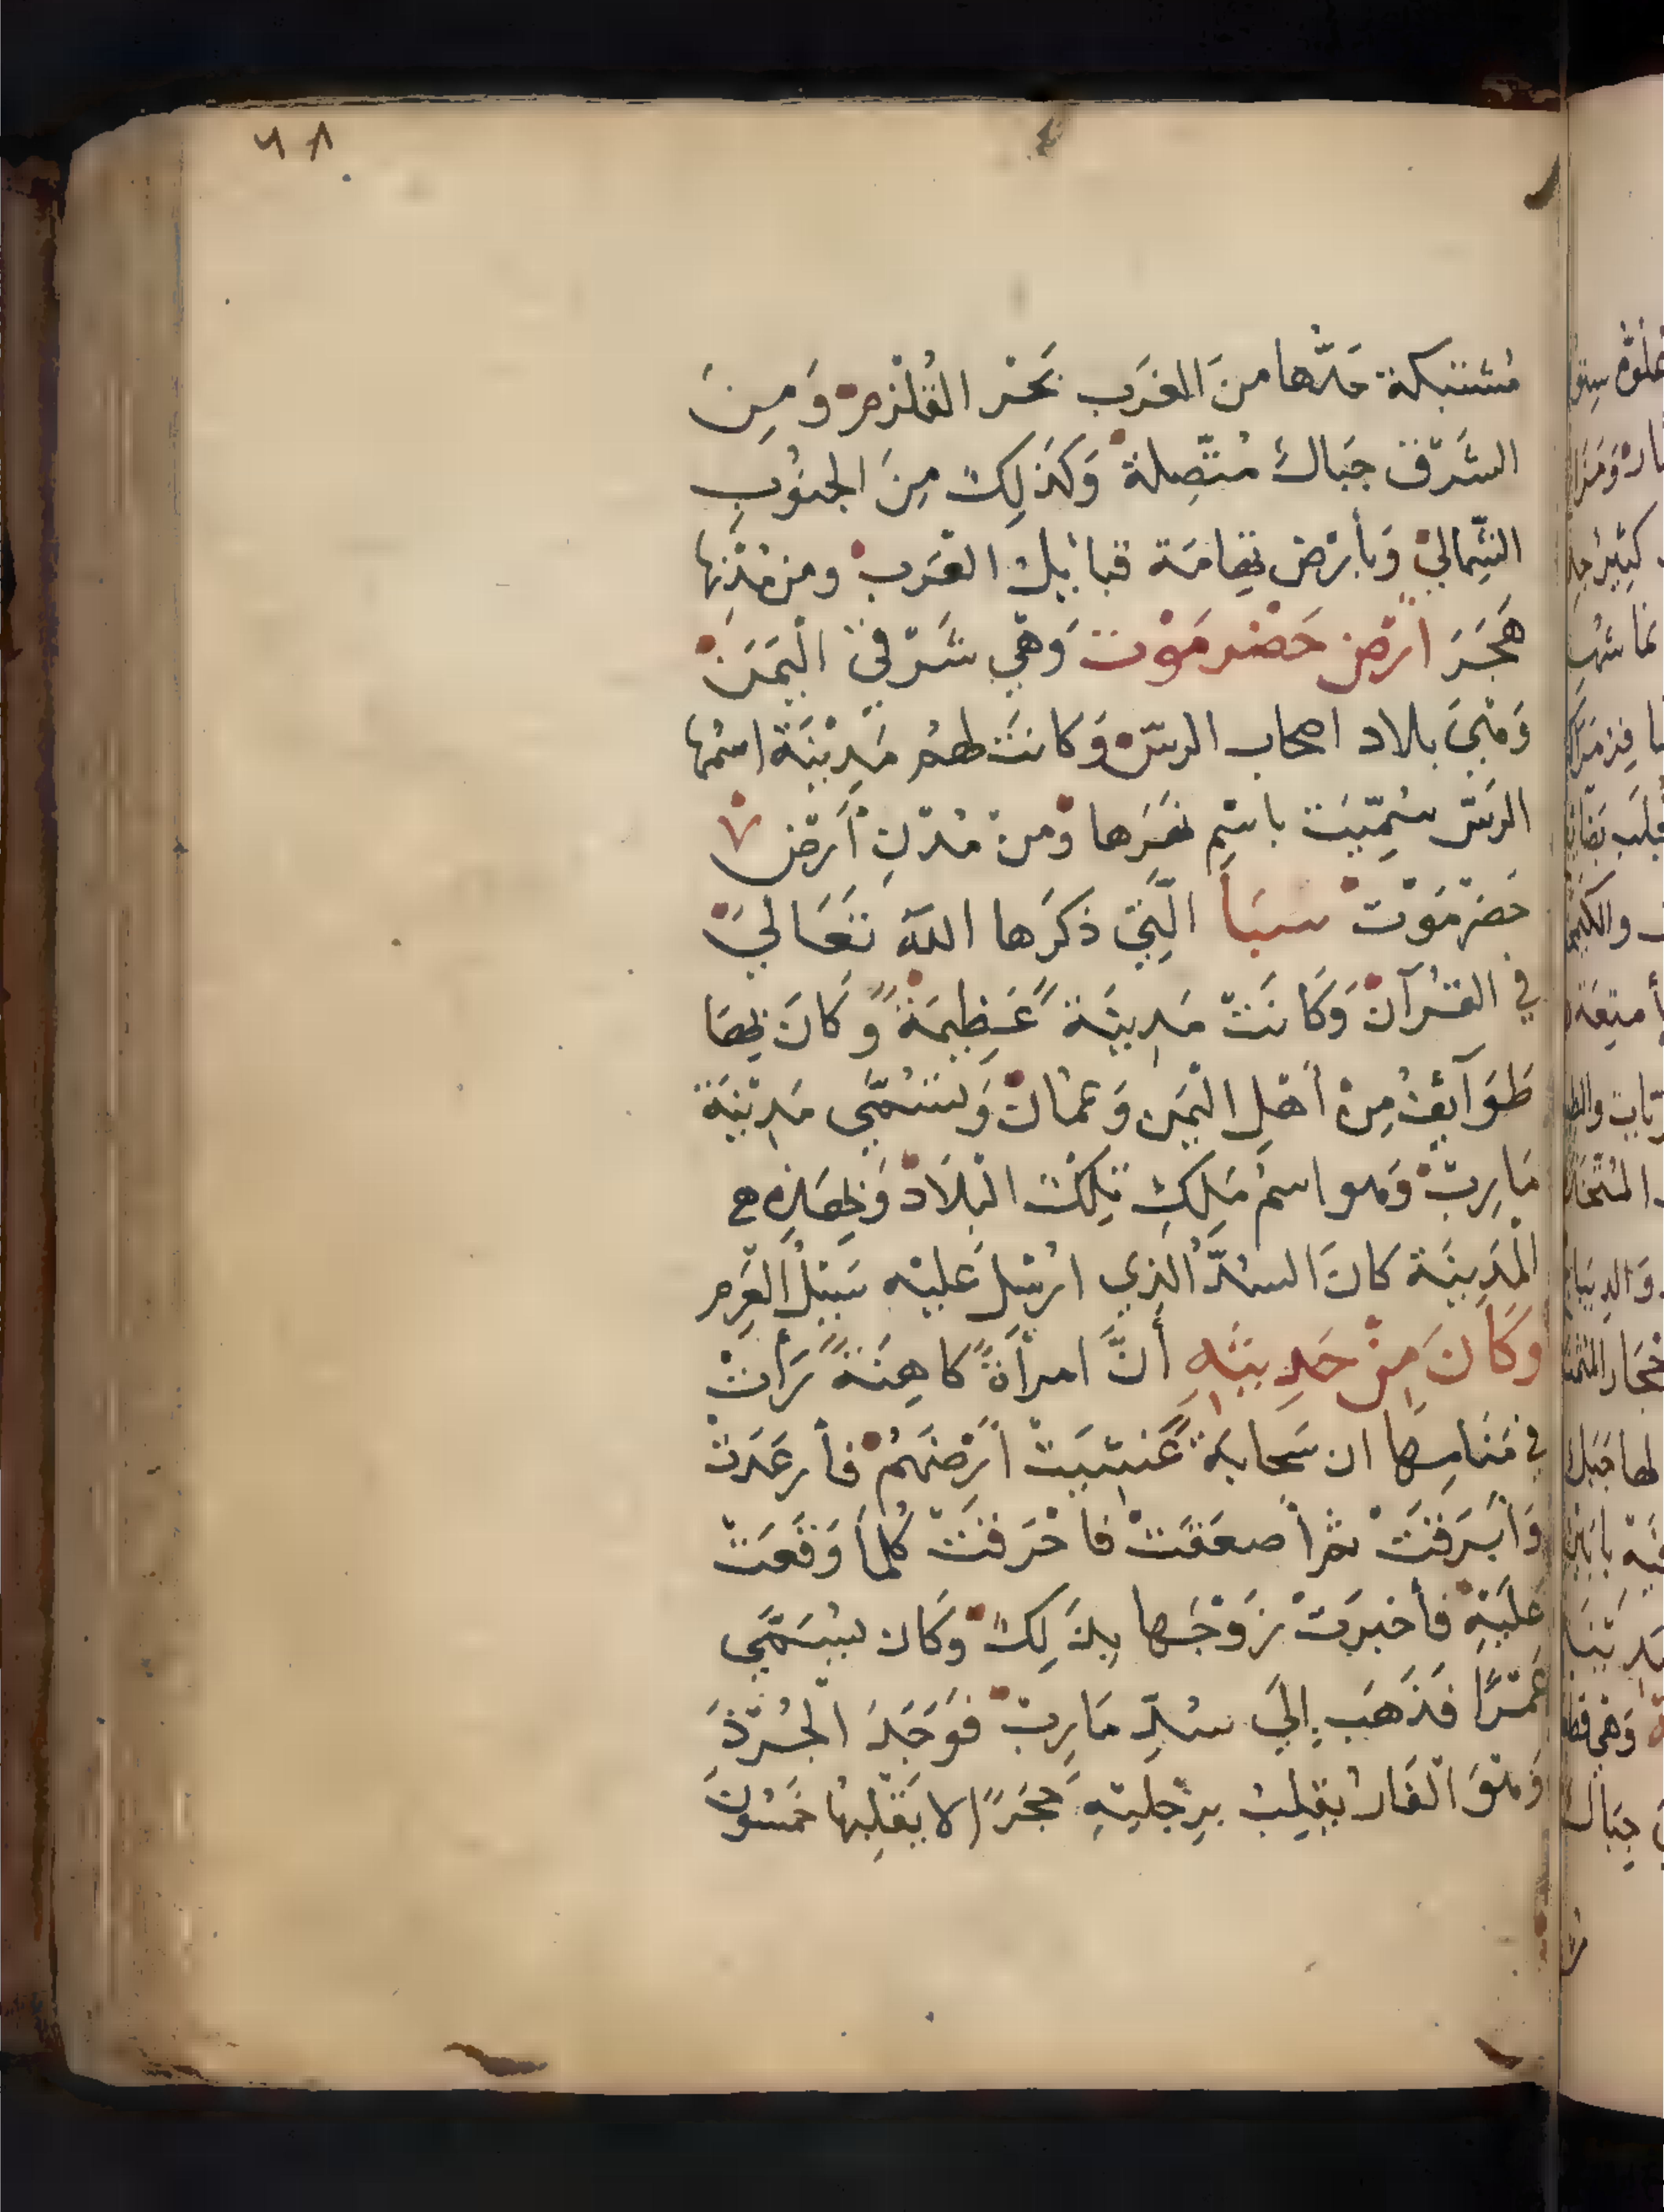 ٦٨
مُشتبكة حَدّها منَ الغَرب بَحْر القُلْزم وَمِنَ
الشَرْق جبَالٌ مُتّصِلة وَكَذلِكَ مِنَ الجنُوبِ
الشِّمالي وَبأرْض تِهامَة قبائِل العَرب ومن مُدنِها
هَجَرَ ارْض حَضْرمَوْت وَهْي شَرْقيّ الْيَمَن
وَهْيَ بلاد اصحاب الرسّ وَكانَت لهُم مَدِيْنَة اسْمُها
الرَسّ سُمِّيَت باسْمِ نهَرها وَمنْ مُدْنِ أرْض
حَضرْمَوْت سَبَأ الّتِي ذكَرَها اللّه تَعَالي
في القُرآن وَكَانَتْ مَدِينَةً عَظِيمَةً وكَانَ بِهَا
طَوَآئِفُ مِنْ أهْلِ الْيَمَن وَعُمَان وَتسَمّي مَدِيْنَة
مَارِبْ وَهو اسمُ مَلِكِ تِلكَ الْبلَاد وَبِهَذِهِ
الْمَدِينَة كانَ السُدّ الذِي ارْسِل عَليْه سَيْلُ العَرِم
وكَانَ مِنْ حَدِيثِهِ أَنَّ امرأةً كاهِنَةً رَأتْ
في مَنَامِها ان سَحابَةً غَشيَتْ أرْضَهُمْ فأرعَدت
وَأبْرَقَتْ ثمّ أصعَقَتْ فاحْرَقتْ كُلما وَقَعَتْ
عَليَهْ فأخبرَت زَوْجَها بِذلِكْ وَكَان يسَمَّي
عَمْرًا فَذَهَبَ إلَي سُدِّ مَارِبْ فوَجَدَ الْجُرْذَ
وَهْوَ الْفَار يقلِب برِجْليْهِ حَجَرًا لا يَقْلِبهُا خمَسُون